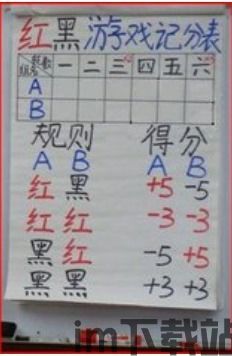 红黑游戏记分表
轮数 组名 一 二 三 四 五 六
A
B
规则 得分
A B A B
红 黑 +5 -5
红 红 -3 -3
黑 红 -5 +5
黑 黑 +3 +3
im下载站